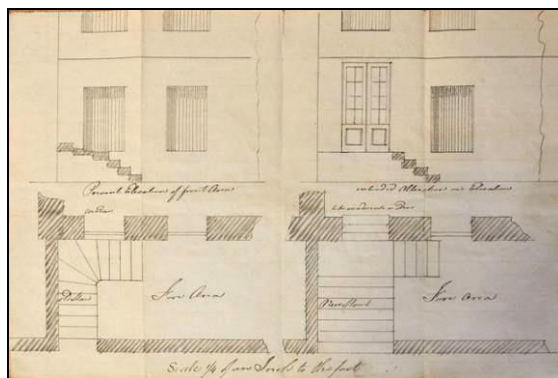 Present Elevation of front Area
intended Alteration in Elevation
window
Fore Area
Fore Area
Scale ¼ of an Inch to the foot